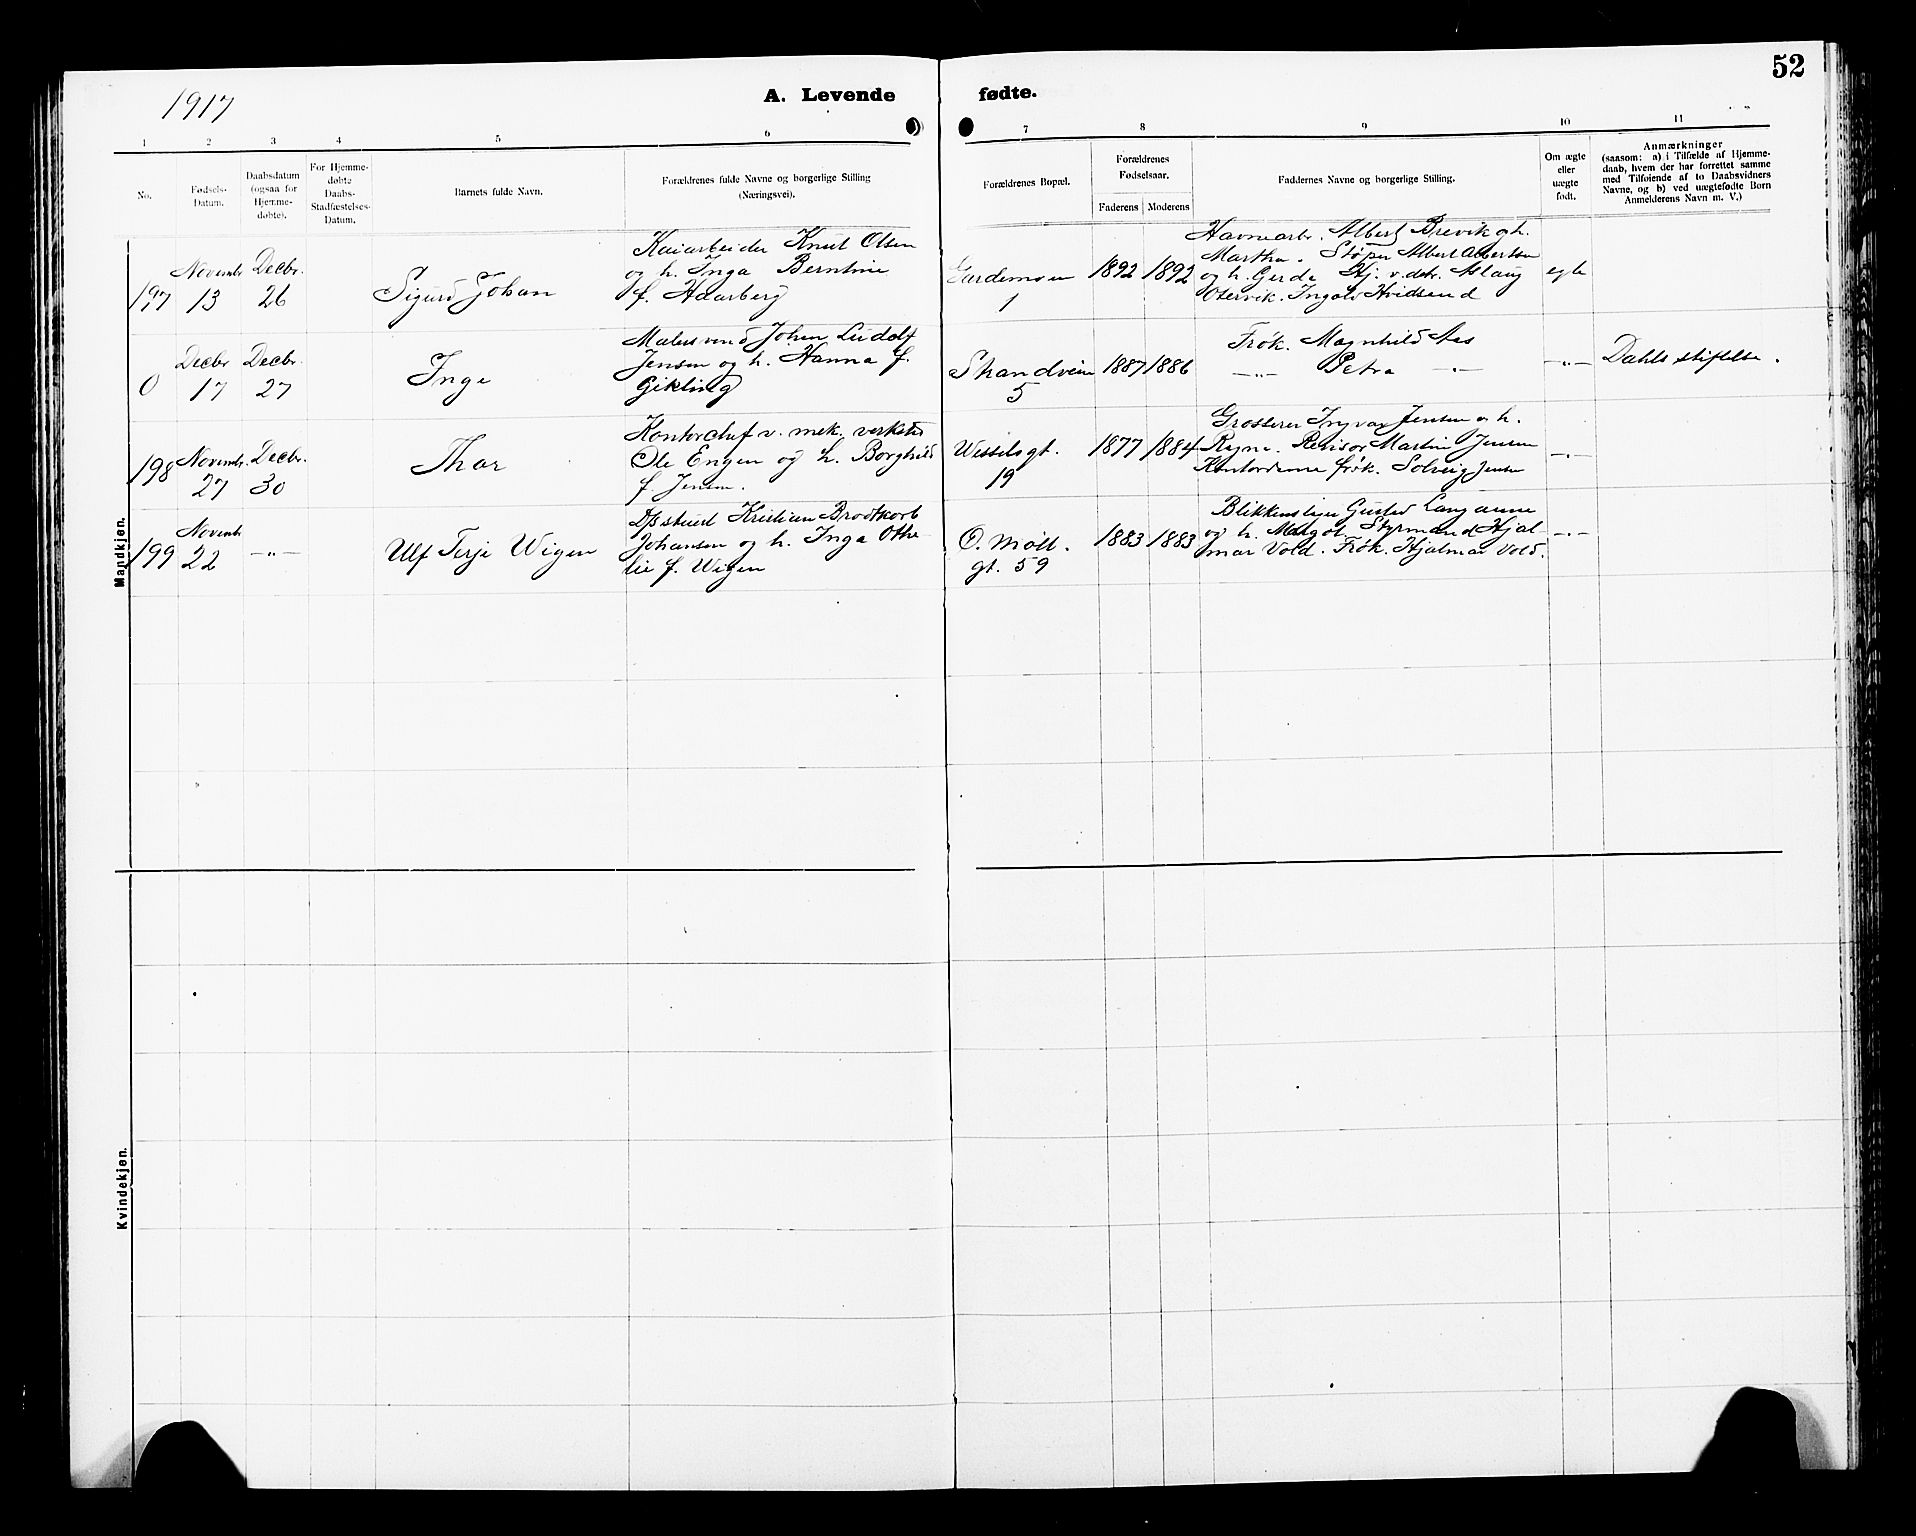 52
1917
A. Levende fødte.
1 2 3 4 5 6 7 8 9 10 11
No.
Fødsels-
Datum.
Daabsdatum
(ogsaa for
Hjemme-
døbte).
For Hjemme-
døbte
Daabs-
Stadfæstelses-
Datum.
Barnets fulde Navn.
Forældrenes fulde Navne og borgerlige Stilling
(Næringsvei).
Forældrenes Bopæl.
Forældrenes
Fødselsaar.
Faderens Moderens
Faddernes Navne og borgerlige Stilling.
Om ægte
eller
uægte
født.
Anmærkninger
(saasom: a) i Tilfælde af Hjemme-
daab, hvem der har forrettet samme
med Tilføiende af to Daabsvidners
Navne, og b) ved uægtefødte Børn
Anmelderens Navn m. V.)
Mandkjøn.
197
Novembr
13
Decbr.
26
Sigurd Johan
Kaiarbeider Knut Olsen
og h. Inga Berntine
f. Haarberg
Gardemoen
1
1892 1892
Havnearb. Albert Brevik og h.
Martha. Støper Albert Albertsen
og h. Gerda Hj. v. dstr. Aslaug
Otervik. Ingolv Hvidsand
egte
0
Decbr
17
Decbr.
27
Inge
Malersvend Johan Ludolf
Jensen og h. Hanna f.
Gikling
Strandveien
5
1887 1886
Frøk. Magnhild Aas
—„— Petra —„—
—„—
Dahls stiftelse.
198
Novembr.
27
Decbr.
30
Thor
Kontorchef v. mek. verksted
Ole Engen og h. Borghild
f. Jensen.
Wesselsgt.
19
1877 1884
Grosserer Ingvar Jensen og h.
Ragna. Revisor Martin Jensen
Kontordame frøk. Solveig Jensen
—„—
199
Novembr
22
—„—
Ulf Terje Wigen
Dpstuert Kristian Brodtkorb
Johansen og h. Inga Othe
lie f. Wigen
O. Møll.
gt. 59
1883 1883
Blikkenslager Gustav Langaune
og h. Margot. Styrmand Hjal
mar Vold. Frøk. Hjalmar Vold.
—„—
Kvindekjøn.